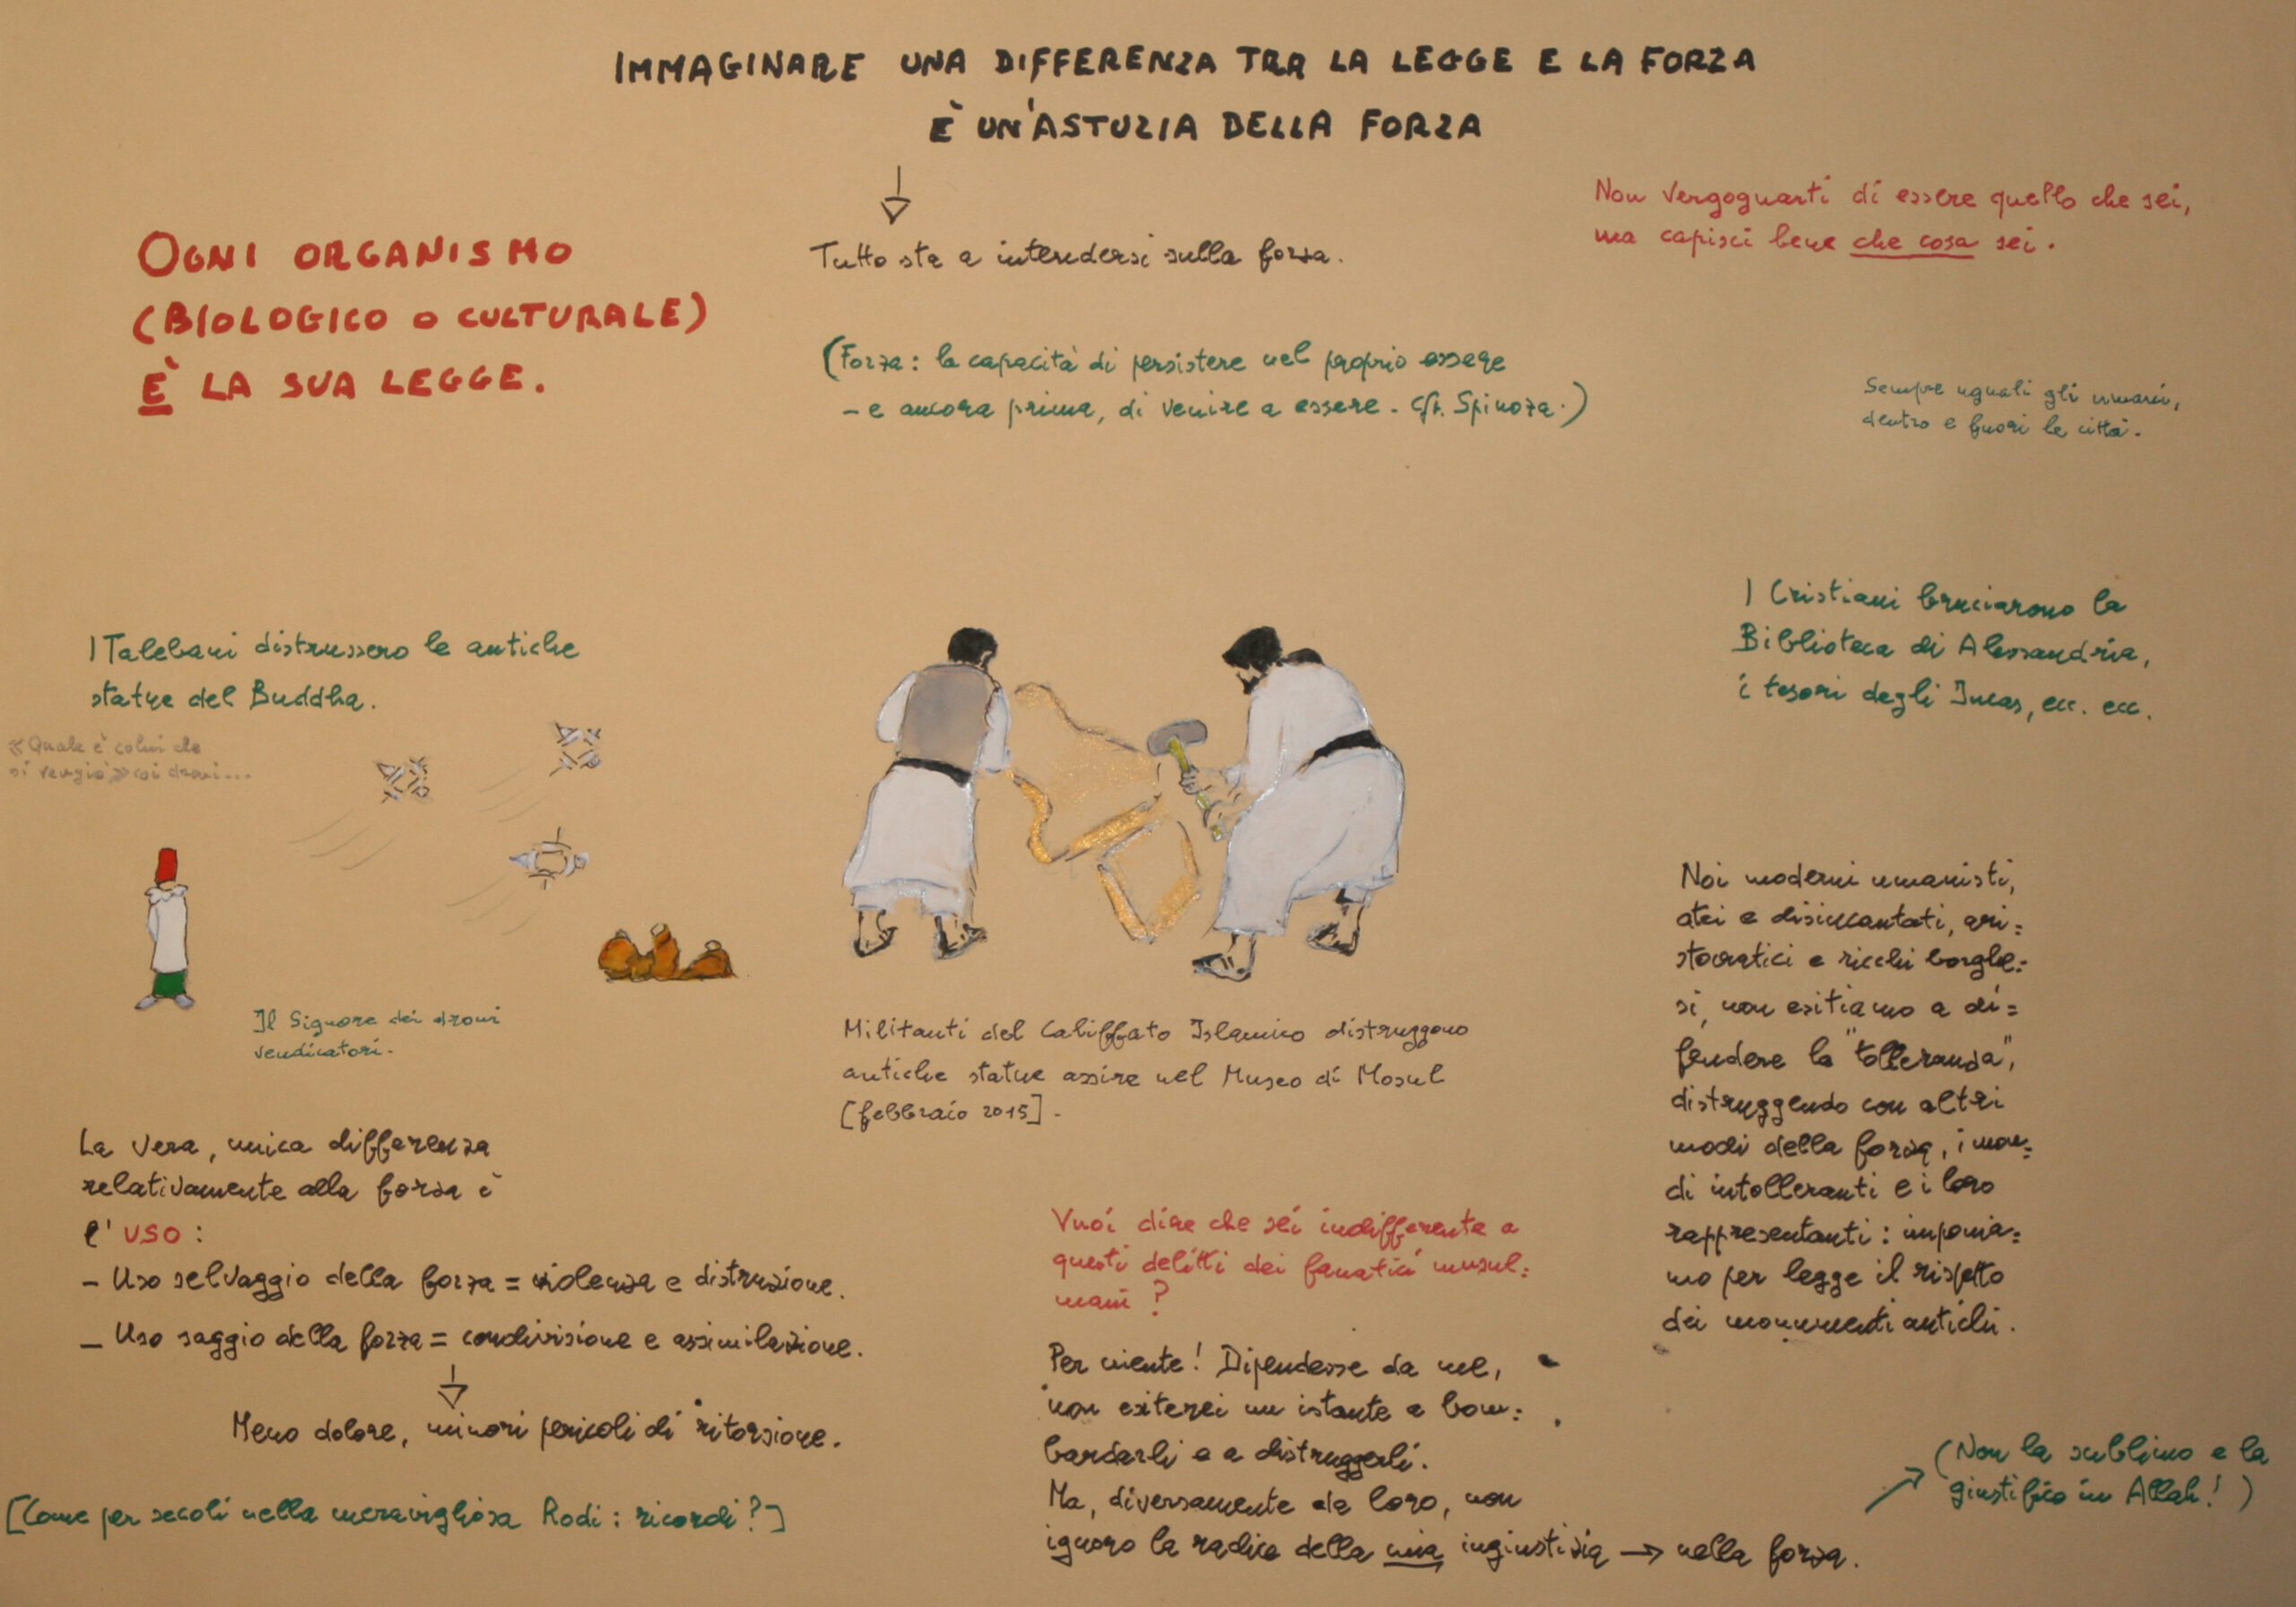 IMMAGINARE UNA DIFFERENZA TRA LA LEGGE E LA FORZA
È UN'ASTUZIA DELLA FORZA
Tutto sta a intendersi sulla forza.
(Forza: la capacità di persistere nel proprio essere
– e ancora prima, di venire a essere. Cfr. Spinoza.)
OGNI ORGANISMO
(BIOLOGICO O CULTURALE)
È LA SUA LEGGE.
Non vergognarti di essere quello che sei,
ma capisci bene che cosa sei.
Sempre uguali gli umani,
dentro e fuori le città.
I Talebani distrussero le antiche
statue del Buddha.
«Quale è colui che
si vengiò» coi droni...
Il Signore dei droni
vendicatori.
I Cristiani bruciarono la
Biblioteca di Alessandria,
i tesori degli Incas, ecc. ecc.
Militanti del Califfato Islamico distruggono
antiche statue assire nel Museo di Mosul
[febbraio 2015].
Noi moderni umanisti,
atei e disincantati, ari=
stocratici e ricchi borghe=
si, non esitiamo a di=
fendere la "tolleranza",
distruggendo con altri
modi della forza, i mon=
di intolleranti e i loro
rappresentanti: imponia=
mo per legge il rispetto
dei monumenti antichi.
La vera, unica differenza
relativamente alla forza è
l'USO:
– Uso selvaggio della forza = violenza e distruzione.
– Uso saggio della forza = condivisione e assimilazione.
Meno dolore, minori pericoli di ritorsione.
[Come per secoli nella meravigliosa Rodi: ricordi?]
Vuoi dire che sei indifferente a
questi delitti dei fanatici musul=
mani?
Per niente! Dipendesse da me,
non esiterei un istante a bom=
bardarli e a distruggerli.
Ma, diversamente da loro, non
ignoro la radice della mia ingiustizia → nella forza.
(Non la sublimo e la
giustifico in Allah!)